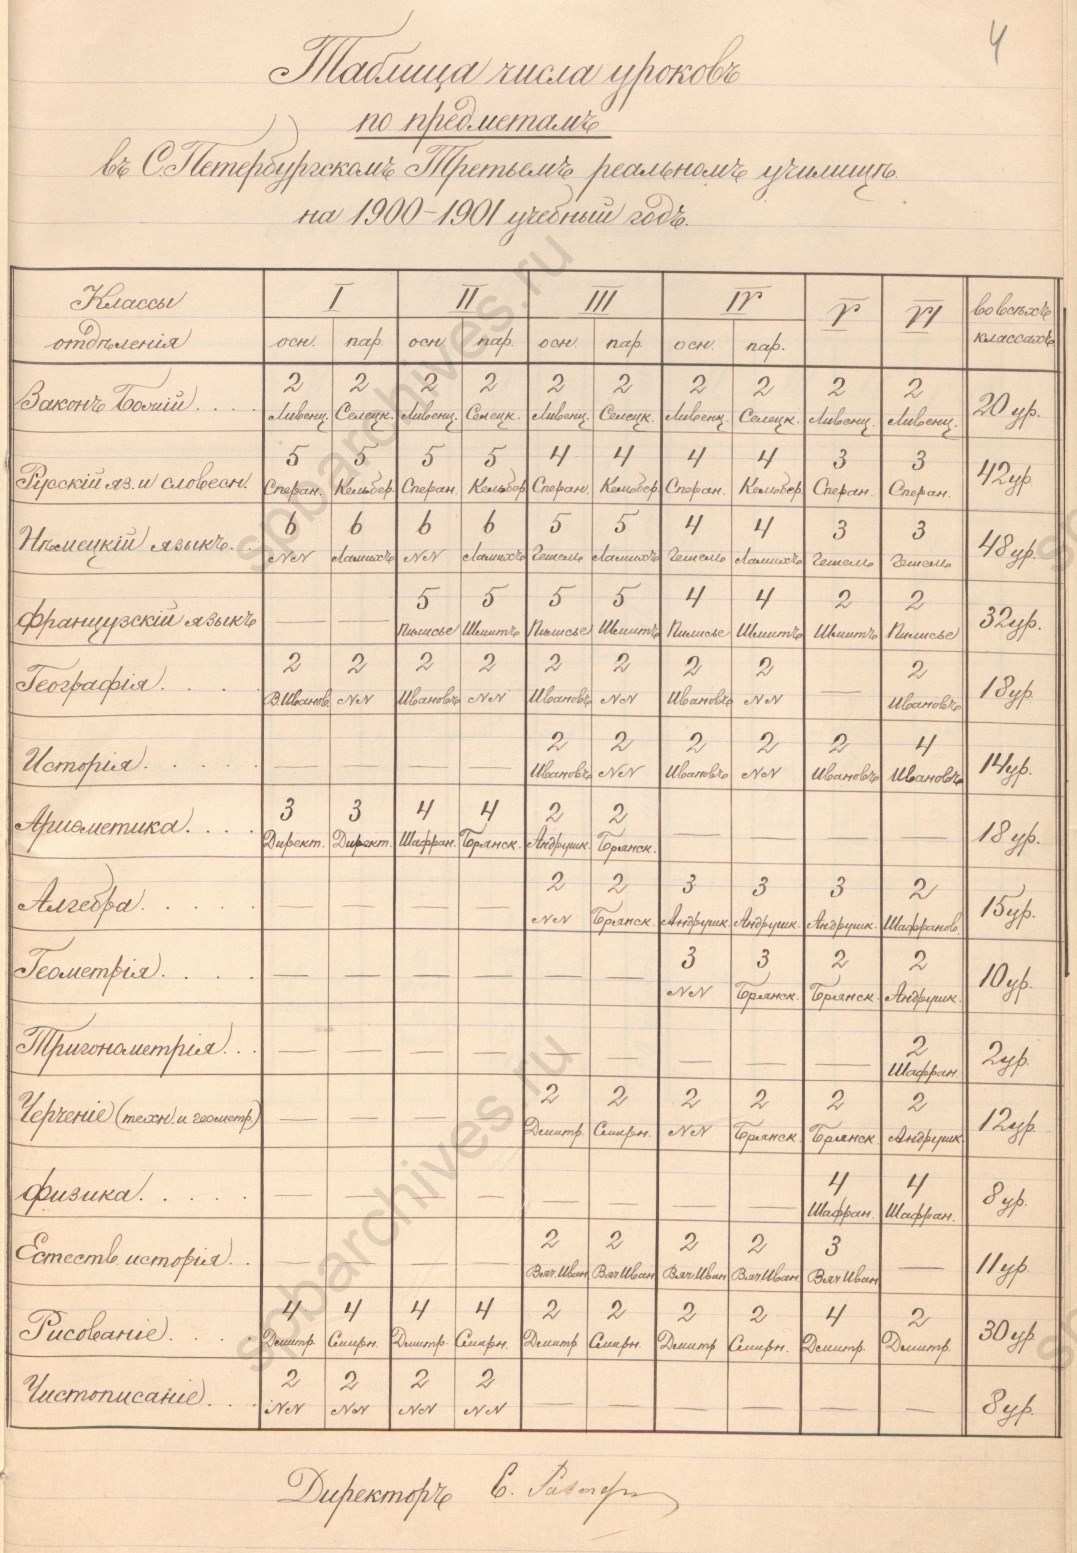 4
Таблица числа уроковъ
по предметамъ
въ С.Петербургскомъ Третьемъ реальномъ училищѣ
на 1900-1901 учебный годъ.
Классы I II III IV V VI во всѣхъ
отдѣленія осн. пар. осн. пар. осн. пар. осн. пар. классахъ
2 2 2 2 2 2 2 2 2 2
Законъ Божій . . . . Ливенц. Селецк. Ливенц. Селецк. Ливенц. Селецк. Ливенц. Селецк. Ливенц. Ливенц. 20 ур.
5 5 5 5 4 4 4 4 3 3
Русскій яз. и словесн. Сперан. Кельбер. Сперан. Кельбер. Сперан. Кельбер. Сперан. Кельбер. Сперан. Сперан. 42 ур.
6 6 6 6 5 5 4 4 3 3
Нѣмецкій языкъ . . NN Ламихъ NN Ламихъ Гешель Ламихъ Гешель Ламихъ Гешель Гешель 48 ур.
5 5 5 5 4 4 2 2
Французскій языкъ — — Пилисье Шмитъ Пилисье Шмитъ Пилисье Шмитъ Шмитъ Пилисье 32 ур.
2 2 2 2 2 2 2 2 2
Географія . . . . В.Иванов. NN Ивановъ NN Ивановъ NN Ивановъ NN — Ивановъ 18 ур.
2 2 2 2 2 4
Исторія . . . . . — — — — Ивановъ NN Ивановъ NN Ивановъ Ивановъ 14 ур.
3 3 4 4 2 2
Ариѳметика . . . . Директ. Директ. Шафран. Брянск. Андрушк. Брянск. — — — — 18 ур.
2 2 3 3 3 2
Алгебра . . . . . — — — — NN Брянск. Андрушк. Андрушк. Андрушк. Шаффранов. 15 ур.
3 3 2 2
Геометрія . . . . — — — — — — NN Брянск. Брянск. Андрушк. 10 ур.
2
Тригонометрія . . . — — — — — — — — — Шафран. 2 ур.
2 2 2 2 2 2
Черченіе (техн. и геометр.) — — — — Дмитр. Смирн. NN Брянск. Брянск. Андрушк. 12 ур.
4 4
Физика . . . . . — — — — — — — — Шафран. Шафран. 8 ур.
2 2 2 2 3
Естеств. исторія . . — — — — Вяч.Иван Вяч.Иван Вяч.Иван Вяч.Иван. Вяч.Иван — 11 ур.
4 4 4 4 2 2 2 2 4 2
Рисованіе . . . . Дмитр. Смирн. Дмитр. Смирн. Дмитр Смирн. Дмитр Смирн. Дмитр. Дмитр. 30 ур
2 2 2 2
Чистописаніе . . . NN NN NN NN — — — — — — 8 ур.
Директоръ Е.
spbarchives.ru
spbarchives.ru